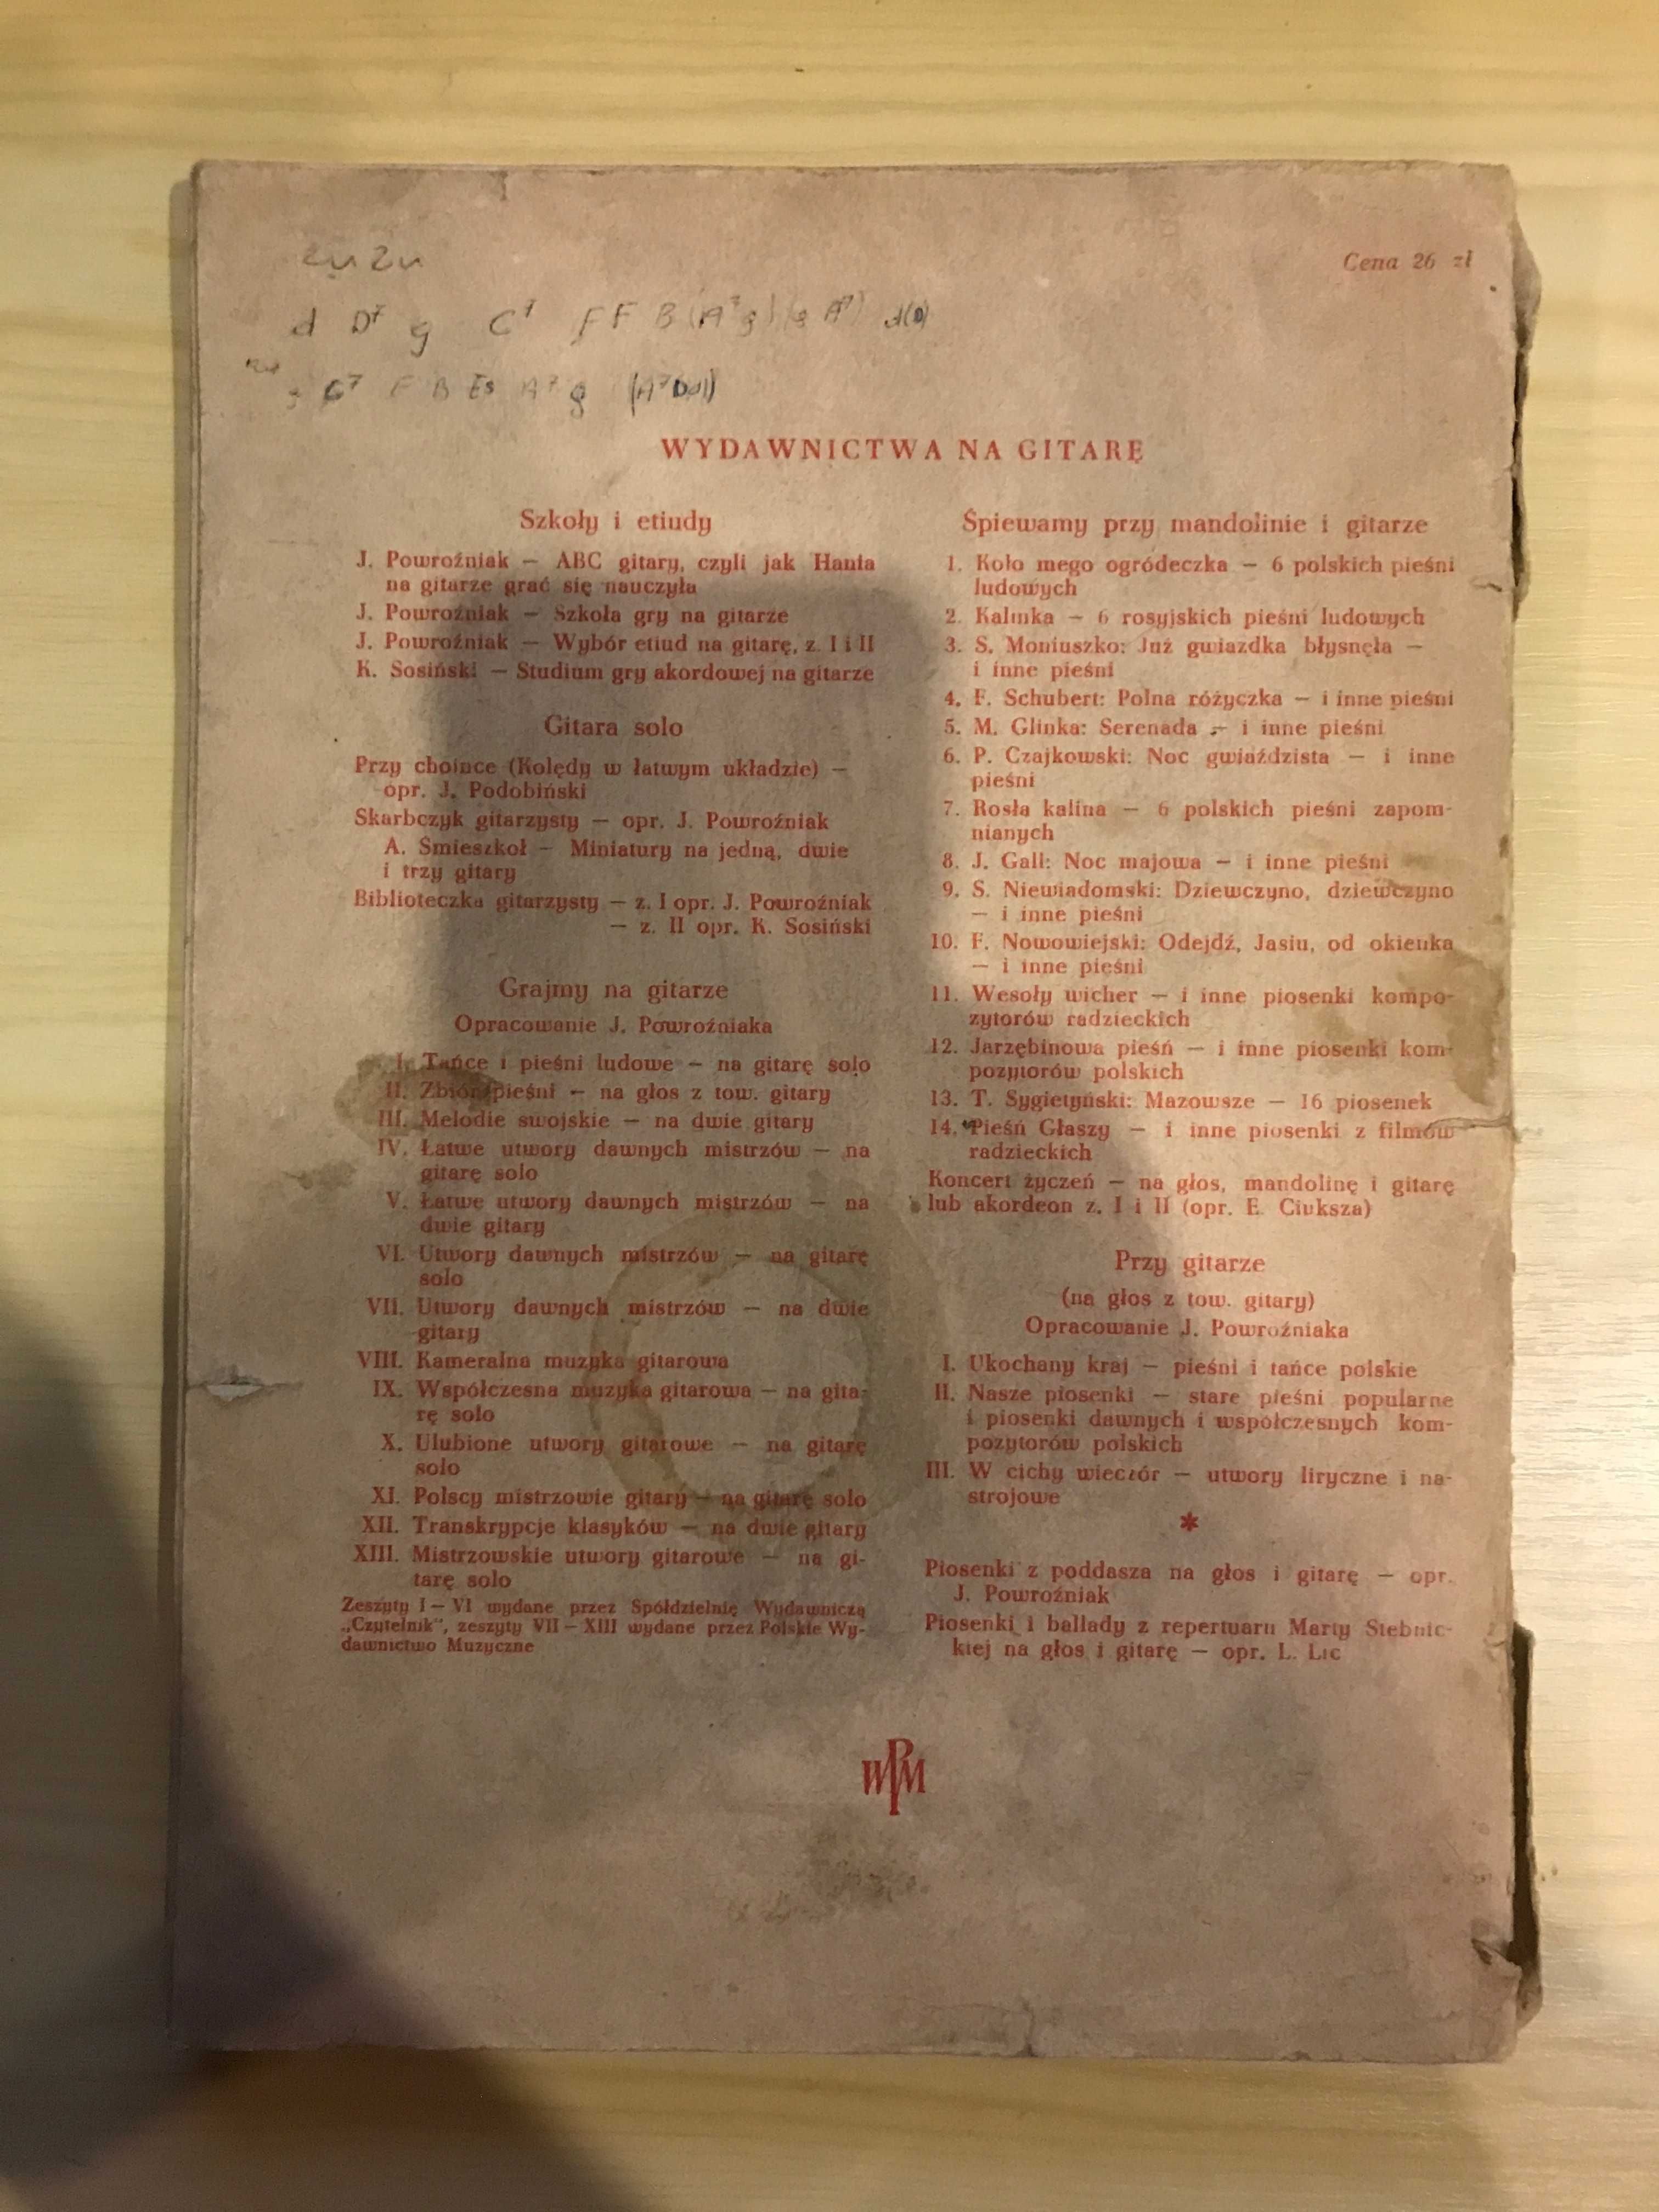 zu zu
Cena 26 zł
d D7 g C7 F F B (A7 g) (g A7) d(D)
g C7 F B Es A7 g
WYDAWNICTWA NA GITARĘ
Szkoły i etiudy
J. Powroźniak — ABC gitary, czyli jak Hania
na gitarze grać się nauczyła
J. Powroźniak — Szkoła gry na gitarze
J. Powroźniak — Wybór etiud na gitarę, z. I i II
K. Sosiński — Studium gry akordowej na gitarze
Gitara solo
Przy choince (Kolędy w łatwym układzie) —
opr. J. Podobiński
Skarbczyk gitarzysty — opr. J. Powroźniak
A. Śmieszkoł — Miniatury na jedną, dwie
i trzy gitary
Biblioteczka gitarzysty — z. I opr. J. Powroźniak
— z. II opr. K. Sosiński
Grajmy na gitarze
Opracowanie J. Powroźniaka
I. Tańce i pieśni ludowe — na gitarę solo
II. Zbiór pieśni — na głos z tow. gitary
III. Melodie swojskie — na dwie gitary
IV. Łatwe utwory dawnych mistrzów — na
gitarę solo
V. Łatwe utwory dawnych mistrzów — na
dwie gitary
VI. Utwory dawnych mistrzów — na gitarę
solo
VII. Utwory dawnych mistrzów — na dwie
gitary
VIII. Kameralna muzyka gitarowa
IX. Współczesna muzyka gitarowa — na gita-
rę solo
X. Ulubione utwory gitarowe — na gitarę
solo
XI. Polscy mistrzowie gitary — na gitarę solo
XII. Transkrypcje klasyków — na dwie gitary
XIII. Mistrzowskie utwory gitarowe — na gi-
tarę solo
Zeszyty I — VI wydane przez Spółdzielnię Wydawniczą
„Czytelnik", zeszyty VII — XIII wydane przez Polskie Wy-
dawnictwo Muzyczne
Śpiewamy przy mandolinie i gitarze
1. Koło mego ogródeczka — 6 polskich pieśni
ludowych
2. Kalinka — 6 rosyjskich pieśni ludowych
3. S. Moniuszko: Już gwiazdka błysnęła —
i inne pieśni
4. F. Schubert: Polna różyczka — i inne pieśni
5. M. Glinka: Serenada — i inne pieśni
6. P. Czajkowski: Noc gwiaździsta — i inne
pieśni
7. Rosła kalina — 6 polskich pieśni zapom-
nianych
8. J. Gall: Noc majowa — i inne pieśni
9. S. Niewiadomski: Dziewczyno, dziewczyno
— i inne pieśni
10. F. Nowowiejski: Odejdź, Jasiu, od okienka
— i inne pieśni
11. Wesoły wicher — i inne piosenki kompo-
zytorów radzieckich
12. Jarzębinowa pieśń — i inne piosenki kom-
pozytorów polskich
13. T. Sygietyński: Mazowsze — 16 piosenek
14. Pieśń Głaszy — i inne piosenki z filmów
radzieckich
Koncert życzeń — na głos, mandolinę i gitarę
lub akordeon z. I i II (opr. E. Ciuksza)
Przy gitarze
(na głos z tow. gitary)
Opracowanie J. Powroźniaka
I. Ukochany kraj — pieśni i tańce polskie
II. Nasze piosenki — stare pieśni popularne
i piosenki dawnych i współczesnych kom-
pozytorów polskich
III. W cichy wieczór — utwory liryczne i na-
strojowe
*
Piosenki z poddasza na głos i gitarę — opr.
J. Powroźniak
Piosenki i ballady z repertuaru Marty Stebnic-
kiej na głos i gitarę — opr. L. Lic
PWM